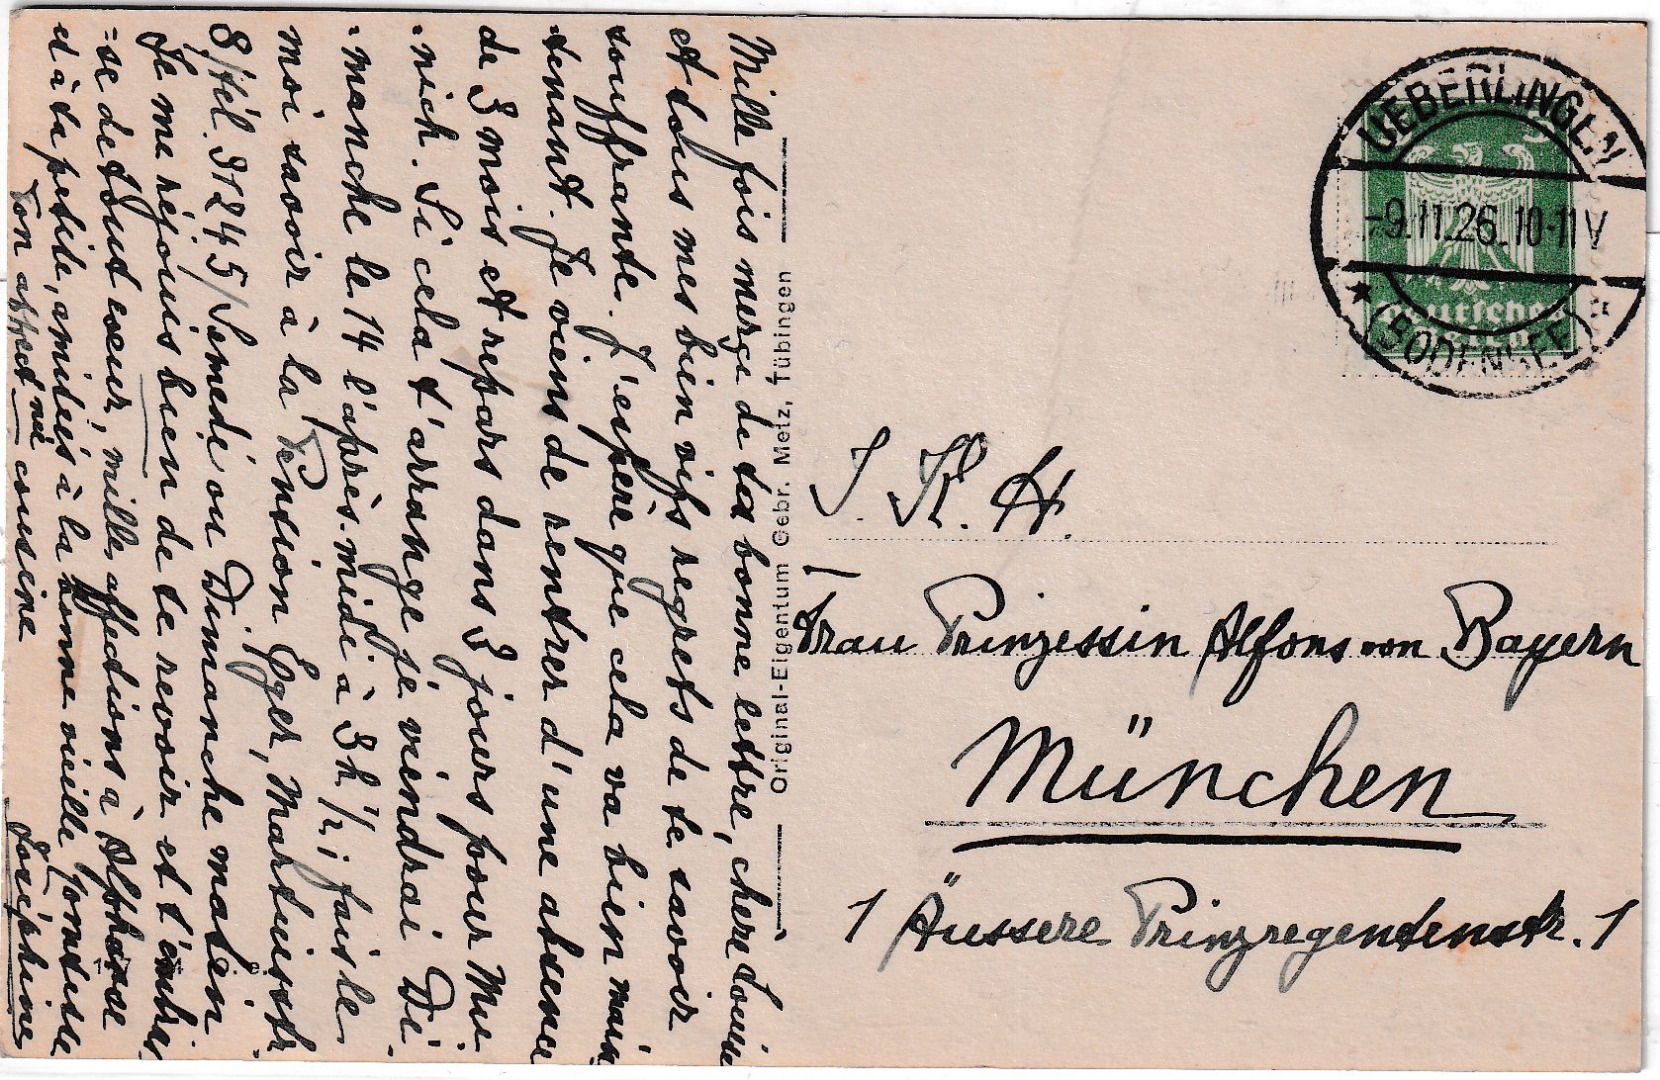 Mille fois merçi de ta bonne lettre, chère Louise
et tous mes bien vifs regrets de te savoir
souffrante. J'espère que cela va bien main
tenant. Je viens de rentrer d'une absence
de 3 mois et repars dans 3 jours pour Mu
-nich. Si cela t'arrange je viendrai Di
-manche le 14 l'après-midi à 3h ½; fais le
moi savoir à la Pention Eger, Martiusstr.
8/tél. 31245/ Samedi ou Dimanche matin
Je me réjouis bien de te revoir et t'embras
-se de tout cœur, mille affections à Alphonse
et à ta petite, amitiés à la bonne vieille
Ton affectnée cousine
Joséphine
Original-Eigentum Gebr. Metz, Tübingen
UEBERLINGEN
-9.11.26.10-11V
(BODENSEE)
5
Deutsches
Reich
I. K. H.
Frau Prinzessin Alfons von Bayern
München
1 Äussere Prinzregentenstr. 1